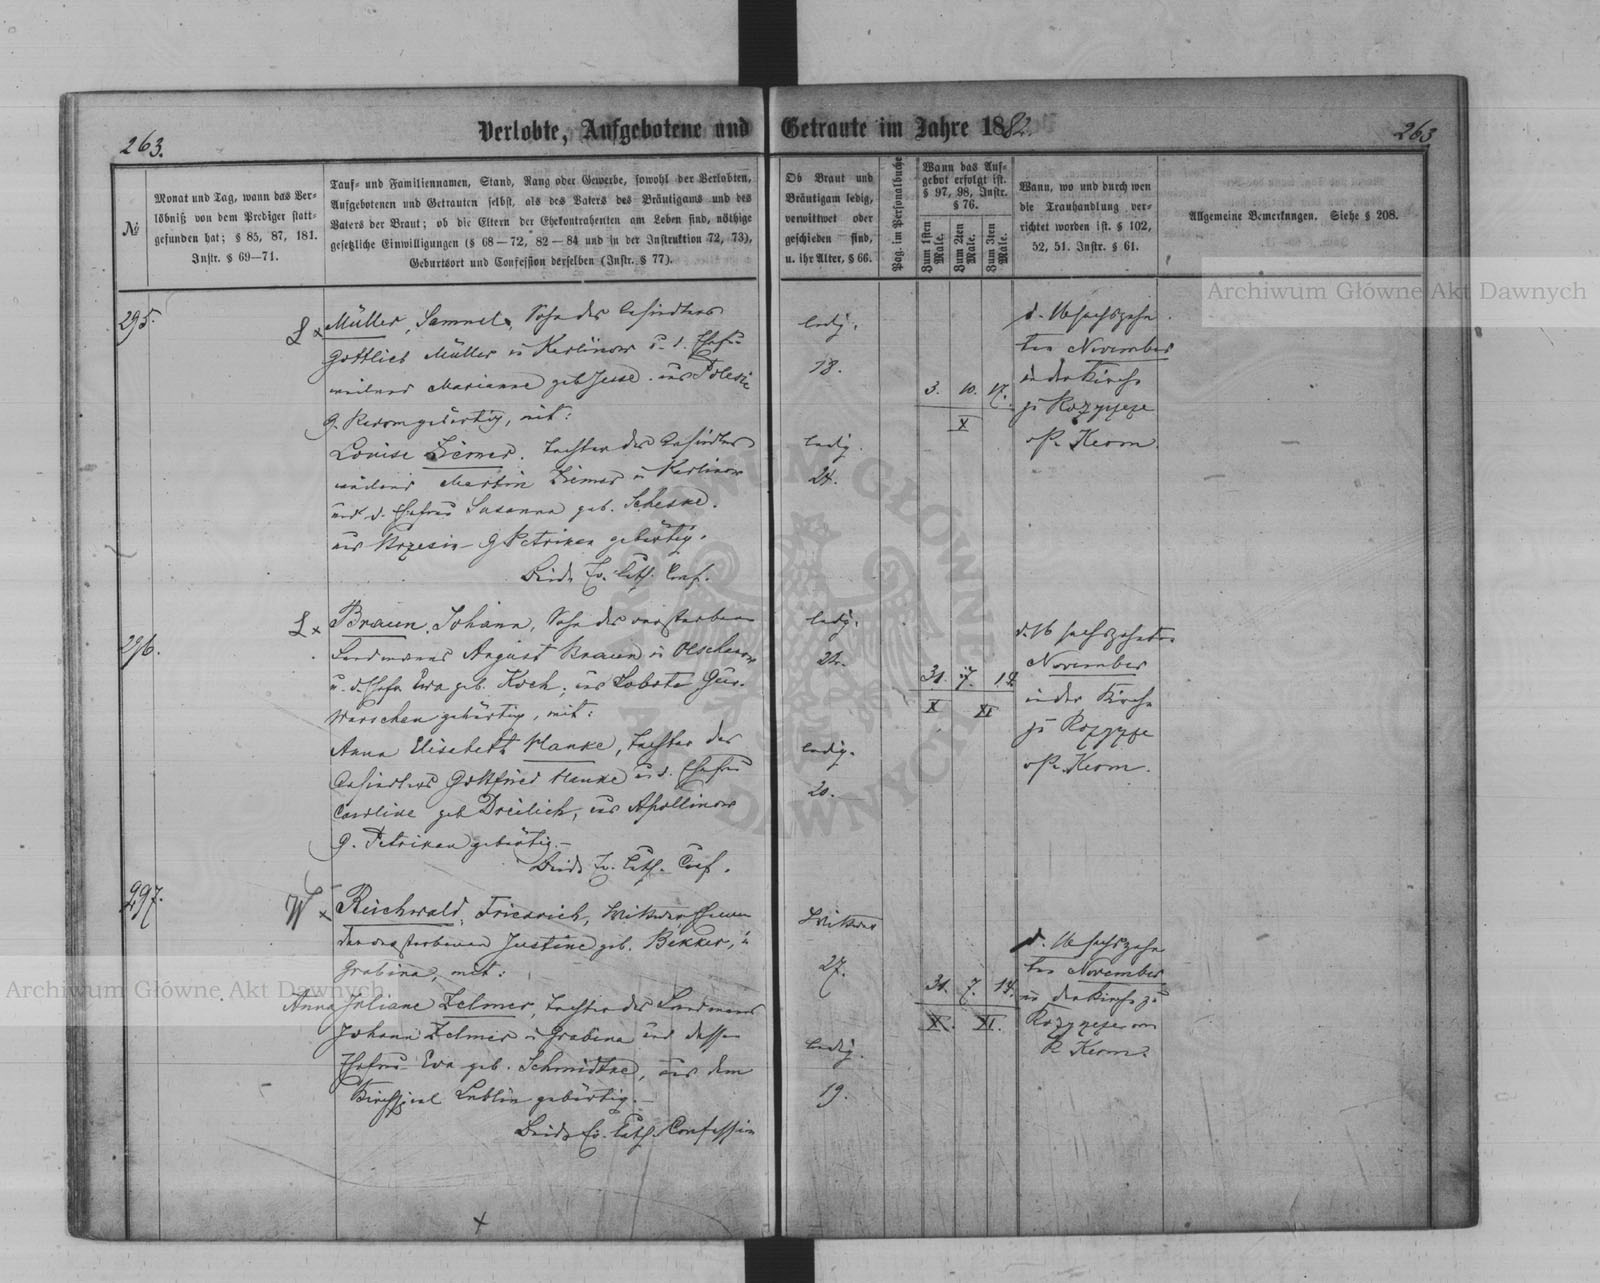 263.
Verlobte, Aufgebotene und Getraute im Jahre 1882.
263
№
Monat und Tag, wann das Ver-
löbniß von dem Prediger statt-
gefunden hat; § 85, 87, 181.
Instr. § 69—71.
Tauf- und Familiennamen, Stand, Rang oder Gewerbe, sowohl der Verlobten,
Aufgebotenen und Getrauten selbst, als des Vaters des Bräutigams und des
Vaters der Braut; ob die Eltern der Ehekontrahenten am Leben sind, nöthige
gesetzliche Einwilligungen (§ 68—72, 82—84 und in der Instruktion 72, 73),
Geburtsort und Confession derselben (Instr. § 77).
Ob Braut und
Bräutigam ledig,
verwittwet oder
geschieden sind,
u. ihr Alter, § 66.
Pag. im Personalbuche
Wann das Auf-
gebot erfolgt ist.
§ 97, 98, Instr.
§ 76.
Zum 1sten Male.
Zum 2ten Male.
Zum 3ten Male.
Wann, wo und durch wen
die Trauhandlung ver-
richtet worden ist. § 102,
52, 51. Instr. § 61.
Allgemeine Bemerkungen. Siehe § 208.
295.
L x Müller, Samuel, Sohn des
Gottlieb Müller in Karlinow u. d. Ehefr.
Marianne geb. Jesse. aus Polesie
g. gebürtig, mit:
Louise Ziemer. Tochter des
weiland Martin Ziemer in Karlinow
und d. Ehefrau Susanna geb. Scheske.
aus g. Petrikau gebürtig.
Beide Ev. Luth. Conf.
ledig.
18.
ledig.
24.
3. 10. 17.
X
d. 16 sechszehn
ten November
in der Kirche
zu Rozprze
P. Kerm.
296.
L x Braun, Johann, Sohn des verstorbenen
Landmanns August Braun in
u. d. Ehefr. Ewa geb. Koch, aus Gur.
Warschau gebürtig, mit:
Anna Elisabeth Hanke, Tochter des
Gottfried Hanke u. d. Ehefrau
Caroline geb. Dreilich, aus Apollinow
g. Petrikau gebürtig.—
Beide Ev. Luth. Conf.
ledig.
22.
ledig.
20.
31. 7. 14
X XI
d. 16 sechszehnten
November
in der Kirche
zu Rozprze
P. Kerm.
297.
W x Reichwald, Friedrich, Wittwer
der verstorbenen Justine geb. Bekker, in
Grabina, mit:
Anna Juliane Zelmer, Tochter des Landmanns
Johann Zelmer in Grabina und dessen
Ehefrau Ewa geb. Schmidtke, aus dem
Kirchspiel Lublin gebürtig.—
Beide Ev. Luth. Confession
Wittwer
27.
ledig.
19.
31. 7. 14.
X. XI.
d. 16 sechszehn
ten November
in der Kirche zu
Rozprze von
P. Kerm.
x
Archiwum Główne Akt Dawnych
Archiwum Główne Akt Dawnych
ARCHIWUM GŁÓWNE AKT DAWNYCH